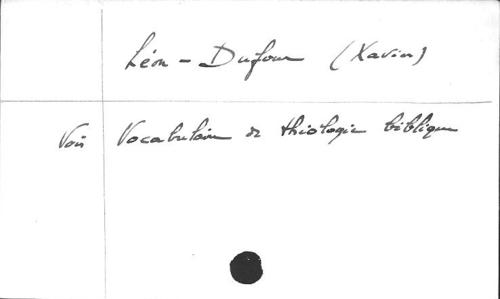 Léon-Dufour (Xavier)
Voir Vocabulaire de théologie biblique